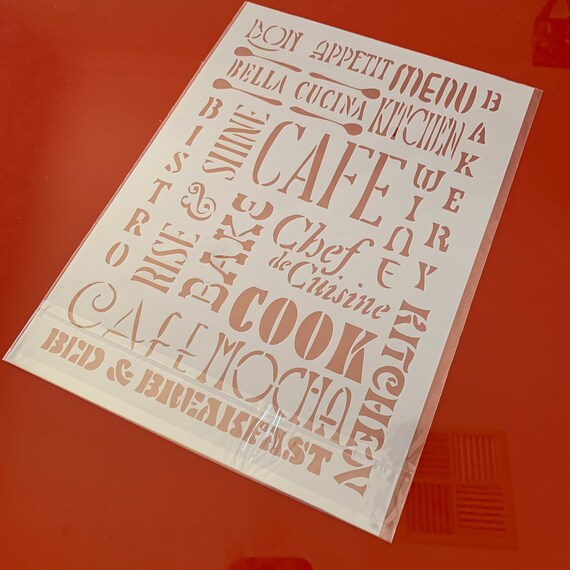 BON APPETIT
MENU
BELLA CUCINA
KITCHEN
BAKERY
BISTRO
SHINE
CAFE
WINE
RISE &
BAKE
Chef
de Cuisine
COOK
KITCHEN
CAFE MOCHA
BED & BREAKFAST